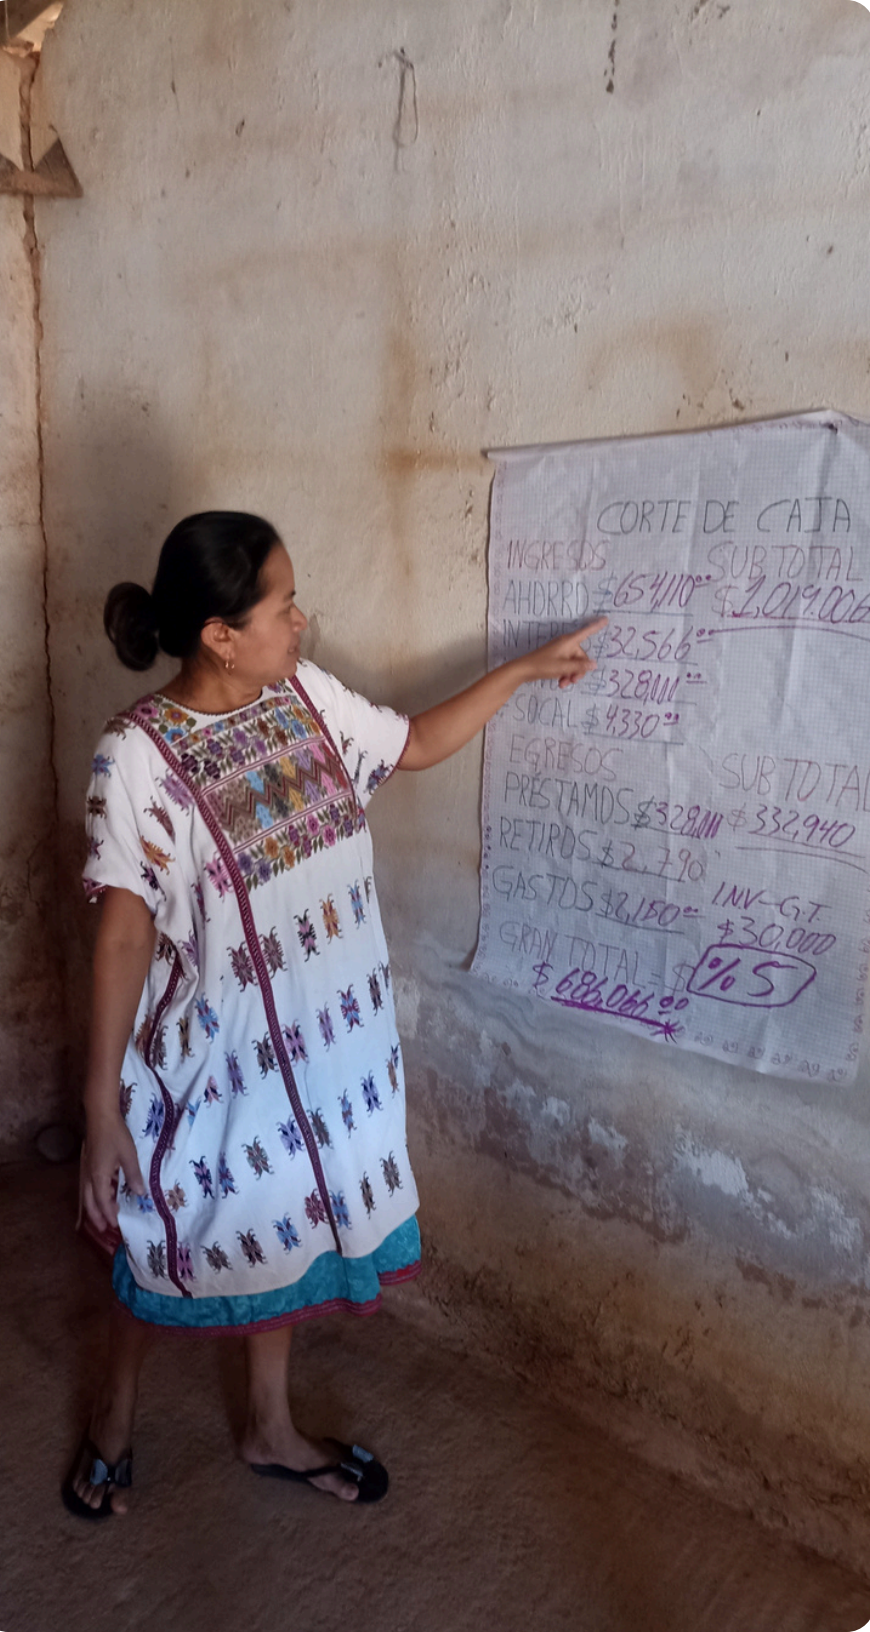 CORTE DE CAJA
INGRESOS SUBTOTAL
AHORRO $654,110°° $1,019.006
$32,566°°
$328,000°°
SOCAL $4,330°°
EGRESOS SUBTOTAL
PRÉSTAMOS $328,000 $332,940
RETIROS $2,790
GASTOS $2,150°° INV-G.T.
$30,000
GRAN TOTAL = $ %5
$686,066°°